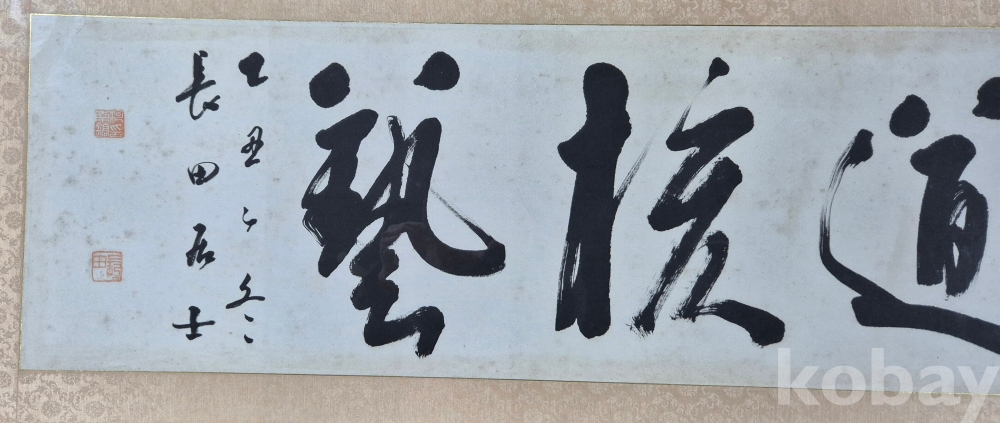 道核藝
乙丑之冬
長田居士
kobay